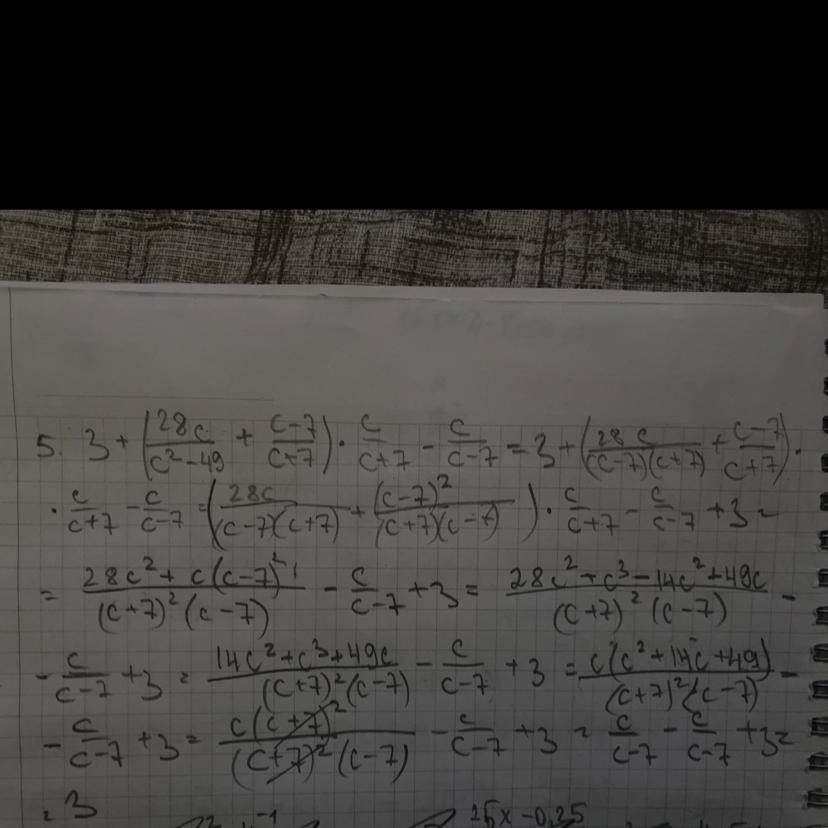 5. 3 + (28c/(c²-49) + (c-7)/(c+7)) · c/(c+7) - c/(c-7) = 3 + (28c/((c-7)(c+7)) + (c-7)/(c+7)) ·
· c/(c+7) - c/(c-7) = (28c/((c-7)(c+7)) + (c-7)²/((c+7)(c-7))) · c/(c+7) - c/(c-7) + 3 =
= (28c² + c(c-7)²)/((c+7)²(c-7)) - c/(c-7) + 3 = (28c² + c³ - 14c² + 49c)/((c+7)²(c-7)) -
- c/(c-7) + 3 = (14c² + c³ + 49c)/((c+7)²(c-7)) - c/(c-7) + 3 = c(c² + 14c + 49)/((c+7)²(c-7)) -
- c/(c-7) + 3 = c(c+7)²/((c+7)²(c-7)) - c/(c-7) + 3 = c/(c-7) - c/(c-7) + 3 =
= 3